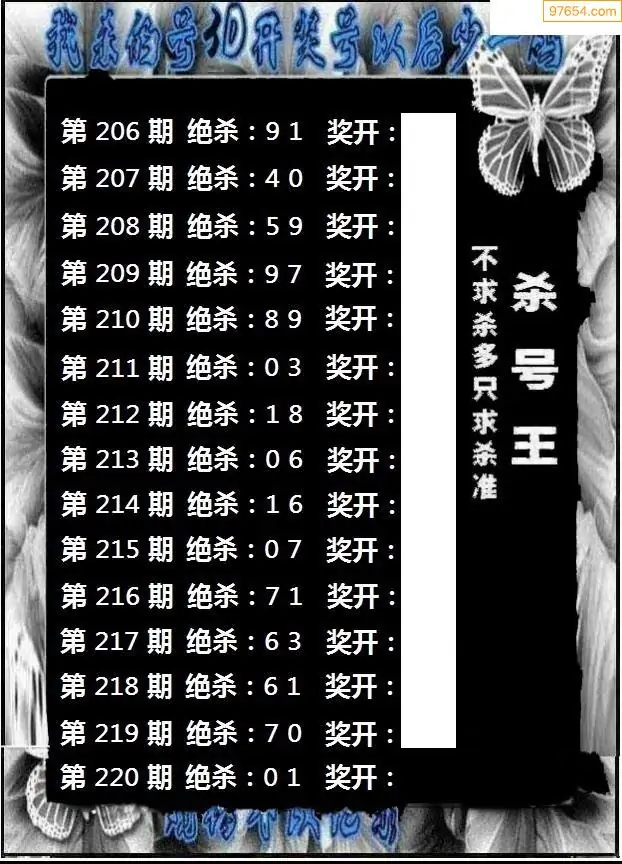 97654.com
我来的号3D开奖号以后少一码
第 206 期 绝杀：9 1 奖开：
第 207 期 绝杀：4 0 奖开：
第 208 期 绝杀：5 9 奖开：
第 209 期 绝杀：9 7 奖开：
第 210 期 绝杀：8 9 奖开：
第 211 期 绝杀：0 3 奖开：
第 212 期 绝杀：1 8 奖开：
第 213 期 绝杀：0 6 奖开：
第 214 期 绝杀：1 6 奖开：
第 215 期 绝杀：0 7 奖开：
第 216 期 绝杀：7 1 奖开：
第 217 期 绝杀：6 3 奖开：
第 218 期 绝杀：6 1 奖开：
第 219 期 绝杀：7 0 奖开：
第 220 期 绝杀：0 1 奖开：
杀号王
不求杀多只求杀准